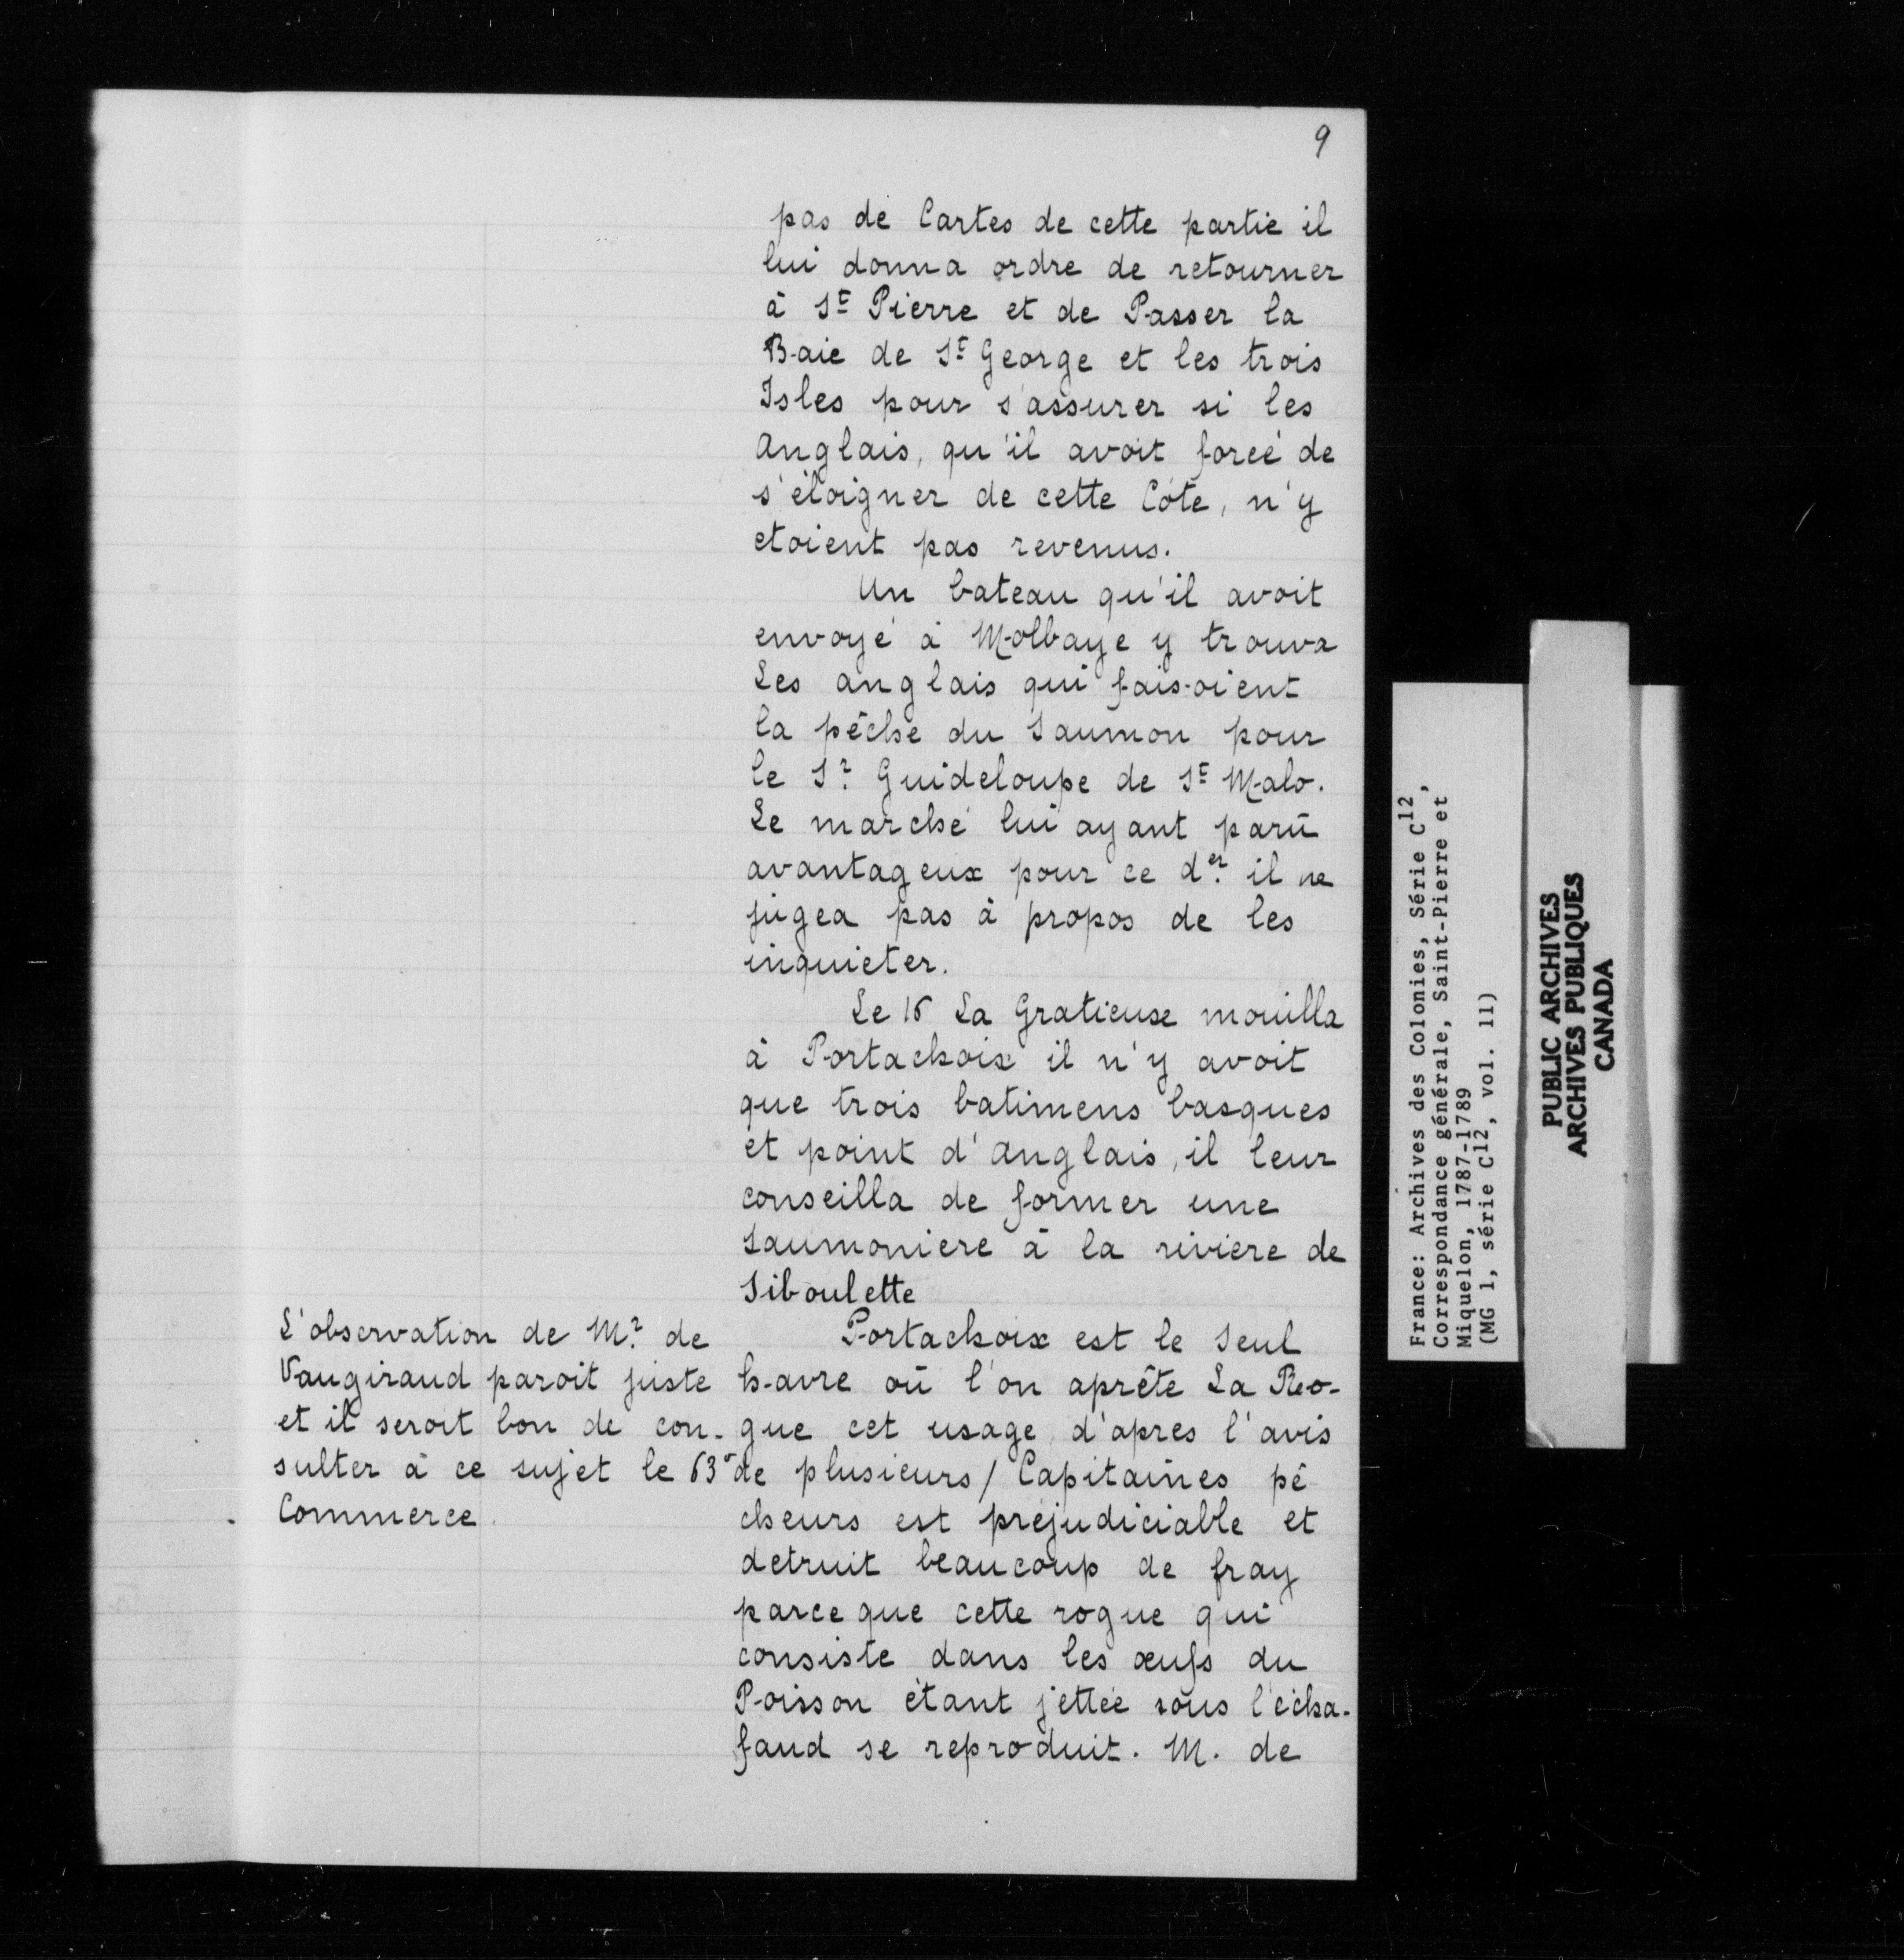 9
pas de Cartes de cette partie il
lui donna ordre de retourner
à St Pierre et de Passer la
Baie de St George et les trois
Isles pour s'assurer si les
Anglais, qu'il avoit forcé de
s'éloigner de cette Côte, n'y
etoient pas revenus.
Un bateau qu'il avoit
envoyé à Molbaye y trouva
Les anglais qui faisoient
la pêche du Saumon pour
le Sr. Guideloupe de St Malo.
Le marché lui ayant parû
avantageux pour ce der. il ne
jugea pas à propos de les
inquieter.
Le 16 La Gratieuse mouilla
à Portachoix il n'y avoit
que trois batimens basques
et point d'Anglais, il leur
conseilla de former une
Saumoniere à la riviere de
Siboulette
Portachoix est le Seul
havre où l'on aprête La Ro-
gue cet usage d'apres l'avis
de plusieurs / Capitaines pê
cheurs est prejudiciable et
detruit beaucoup de fray
parce que cette rogue qui
consiste dans les œufs du
Poisson étant jettée sous l'écha-
faud se reproduit. M. de
L'observation de Mr. de
Vaugiraud paroit juste
et il seroit bon de con-
sulter à ce sujet le 63
Commerce.
France: Archives des Colonies, Série C12,
Correspondance générale, Saint-Pierre et
Miquelon, 1787-1789
(MG 1, série C12, vol. 11)
PUBLIC ARCHIVES
ARCHIVES PUBLIQUES
CANADA